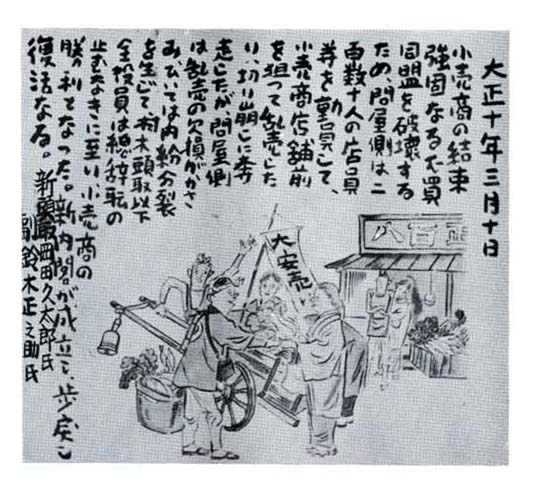 大正十年三月十日
小売商の結束
強固なる不買
同盟を破壊する
ため、問屋側は二
百数十人の店員
等を動員して、
小売商店舗前
を狙って乱売した
り、切り崩しに奔
走したが問屋側
は乱売の欠損がかさ
み、ひいては内紛分裂
を生じて村木頭取以下
全役員は総辞職の
止むなきに至り小売商の
勝利となった。新内閣が成立し、歩戻し
復活なる。
新頭取 岡田久太郎氏
副 鈴木正之助氏
大安売
八百